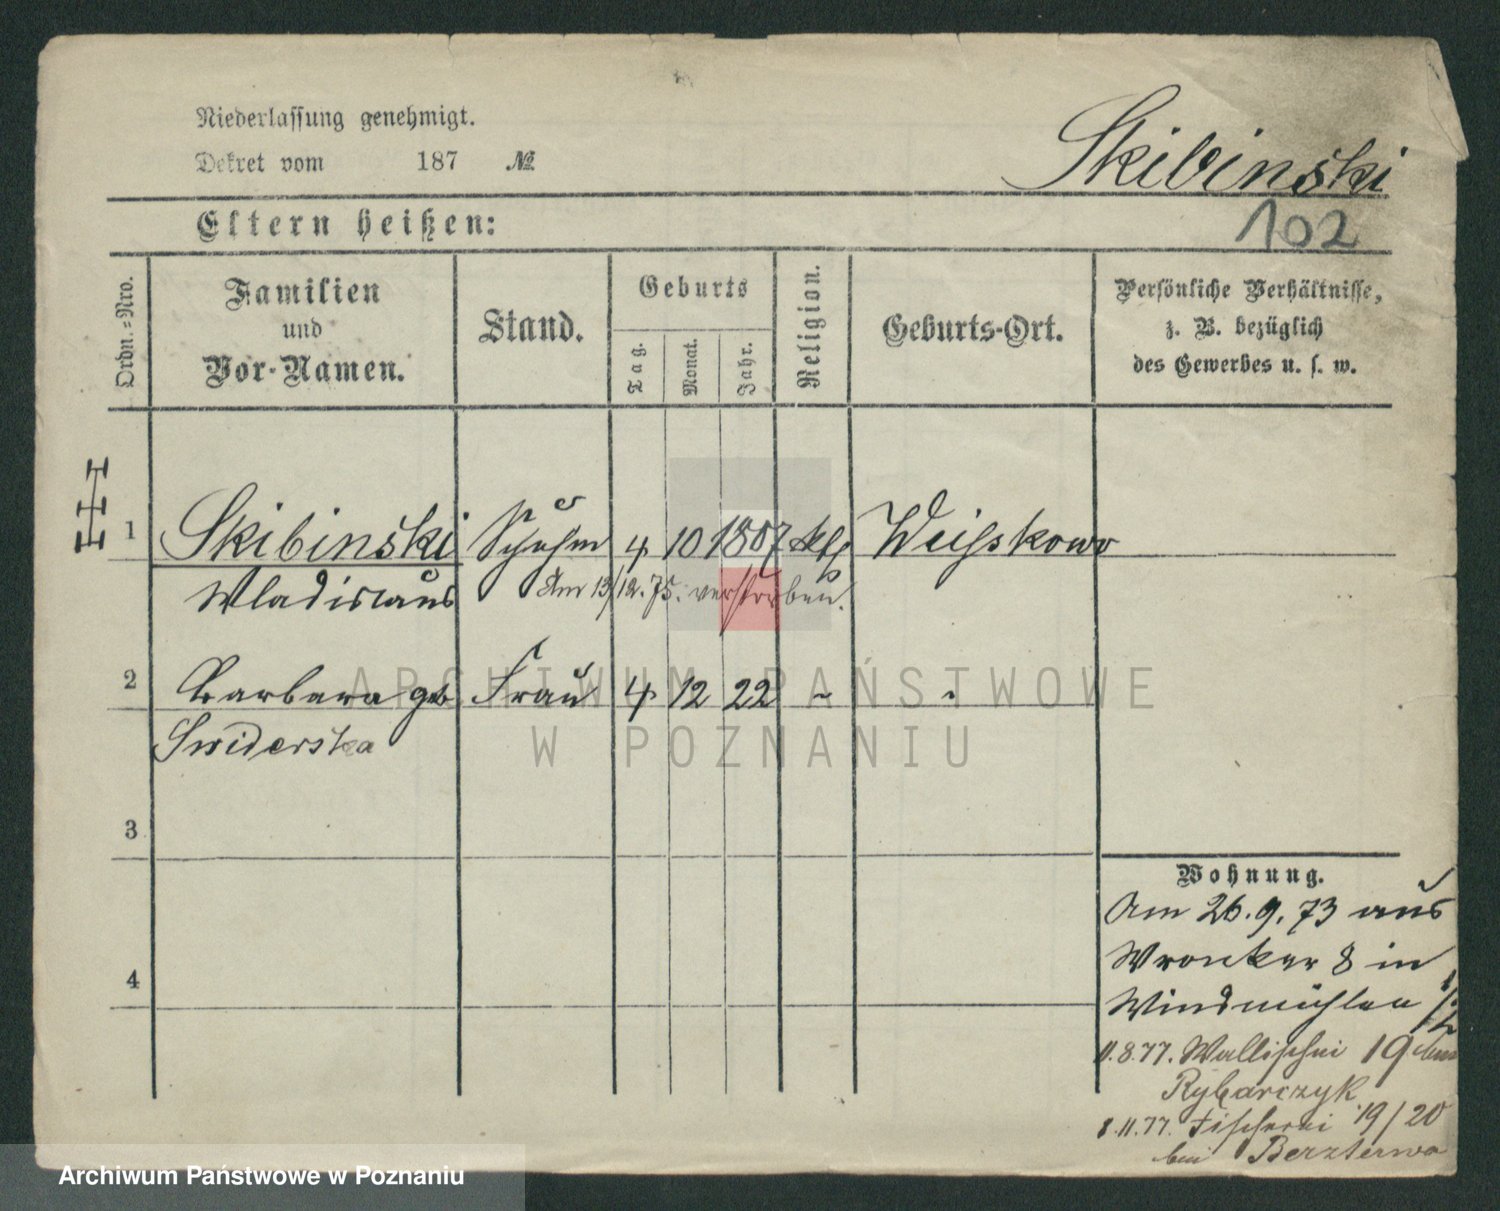 Niederlassung genehmigt.
Dekret vom 187 №
Skibinski
Eltern heißen:
102
Ordn.=Nro.
Familien
und
Vor-Namen.
Stand.
Geburts
Tag.
Monat.
Jahr.
Religion.
Geburts-Ort.
Persönliche Verhältnisse,
z. B. bezüglich
des Gewerbes u. s. w.
1 Skibinski 4 10 1807 kth Weißkowo
Wladislaus
Am 13/12.75. verstorben.
2 Barbara geb Frau 4 12 22
Swiderska
3
4
Wohnung.
Am 26.9.73 aus
Wronker 8 in
Windmühlen
11.8.77. Wallischei 19
Rybarczyk
8.11.77. Fischerei 19/20
bei Berzterwa
ARCHIWUM PAŃSTWOWE
W POZNANIU
Archiwum Państwowe w Poznaniu